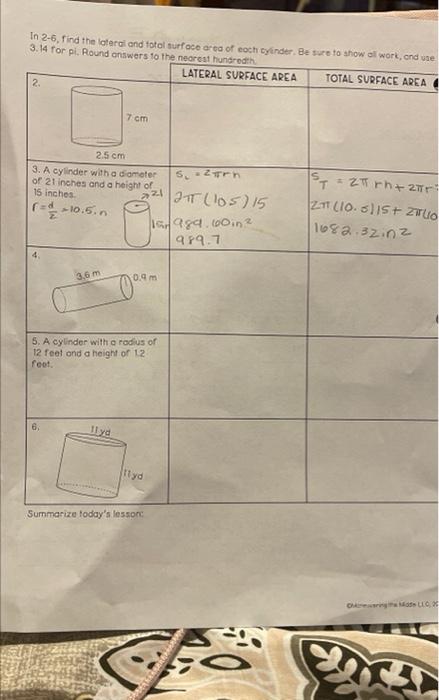 In 2-6, find the lateral and total surface area of each cylinder. Be sure to show all work, and use
3.14 for pi. Round answers to the nearest hundredth.
LATERAL SURFACE AREA
TOTAL SURFACE AREA
2.
7 cm
2.5 cm
3. A cylinder with a diameter
of 21 inches and a height of
15 inches.
21
r=d/2=10.5in
15in
SL = 2πrh
2π(105)15
989.60in²
989.7
ST = 2πrh+2πr²
2π(10.5)15+2π(10
1682.32in2
4.
3.6 m
0.9 m
5. A cylinder with a radius of
12 feet and a height of 1.2
feet.
6.
11yd
11yd
Summarize today's lesson:
©Maneuvering the Middle LLC, 20